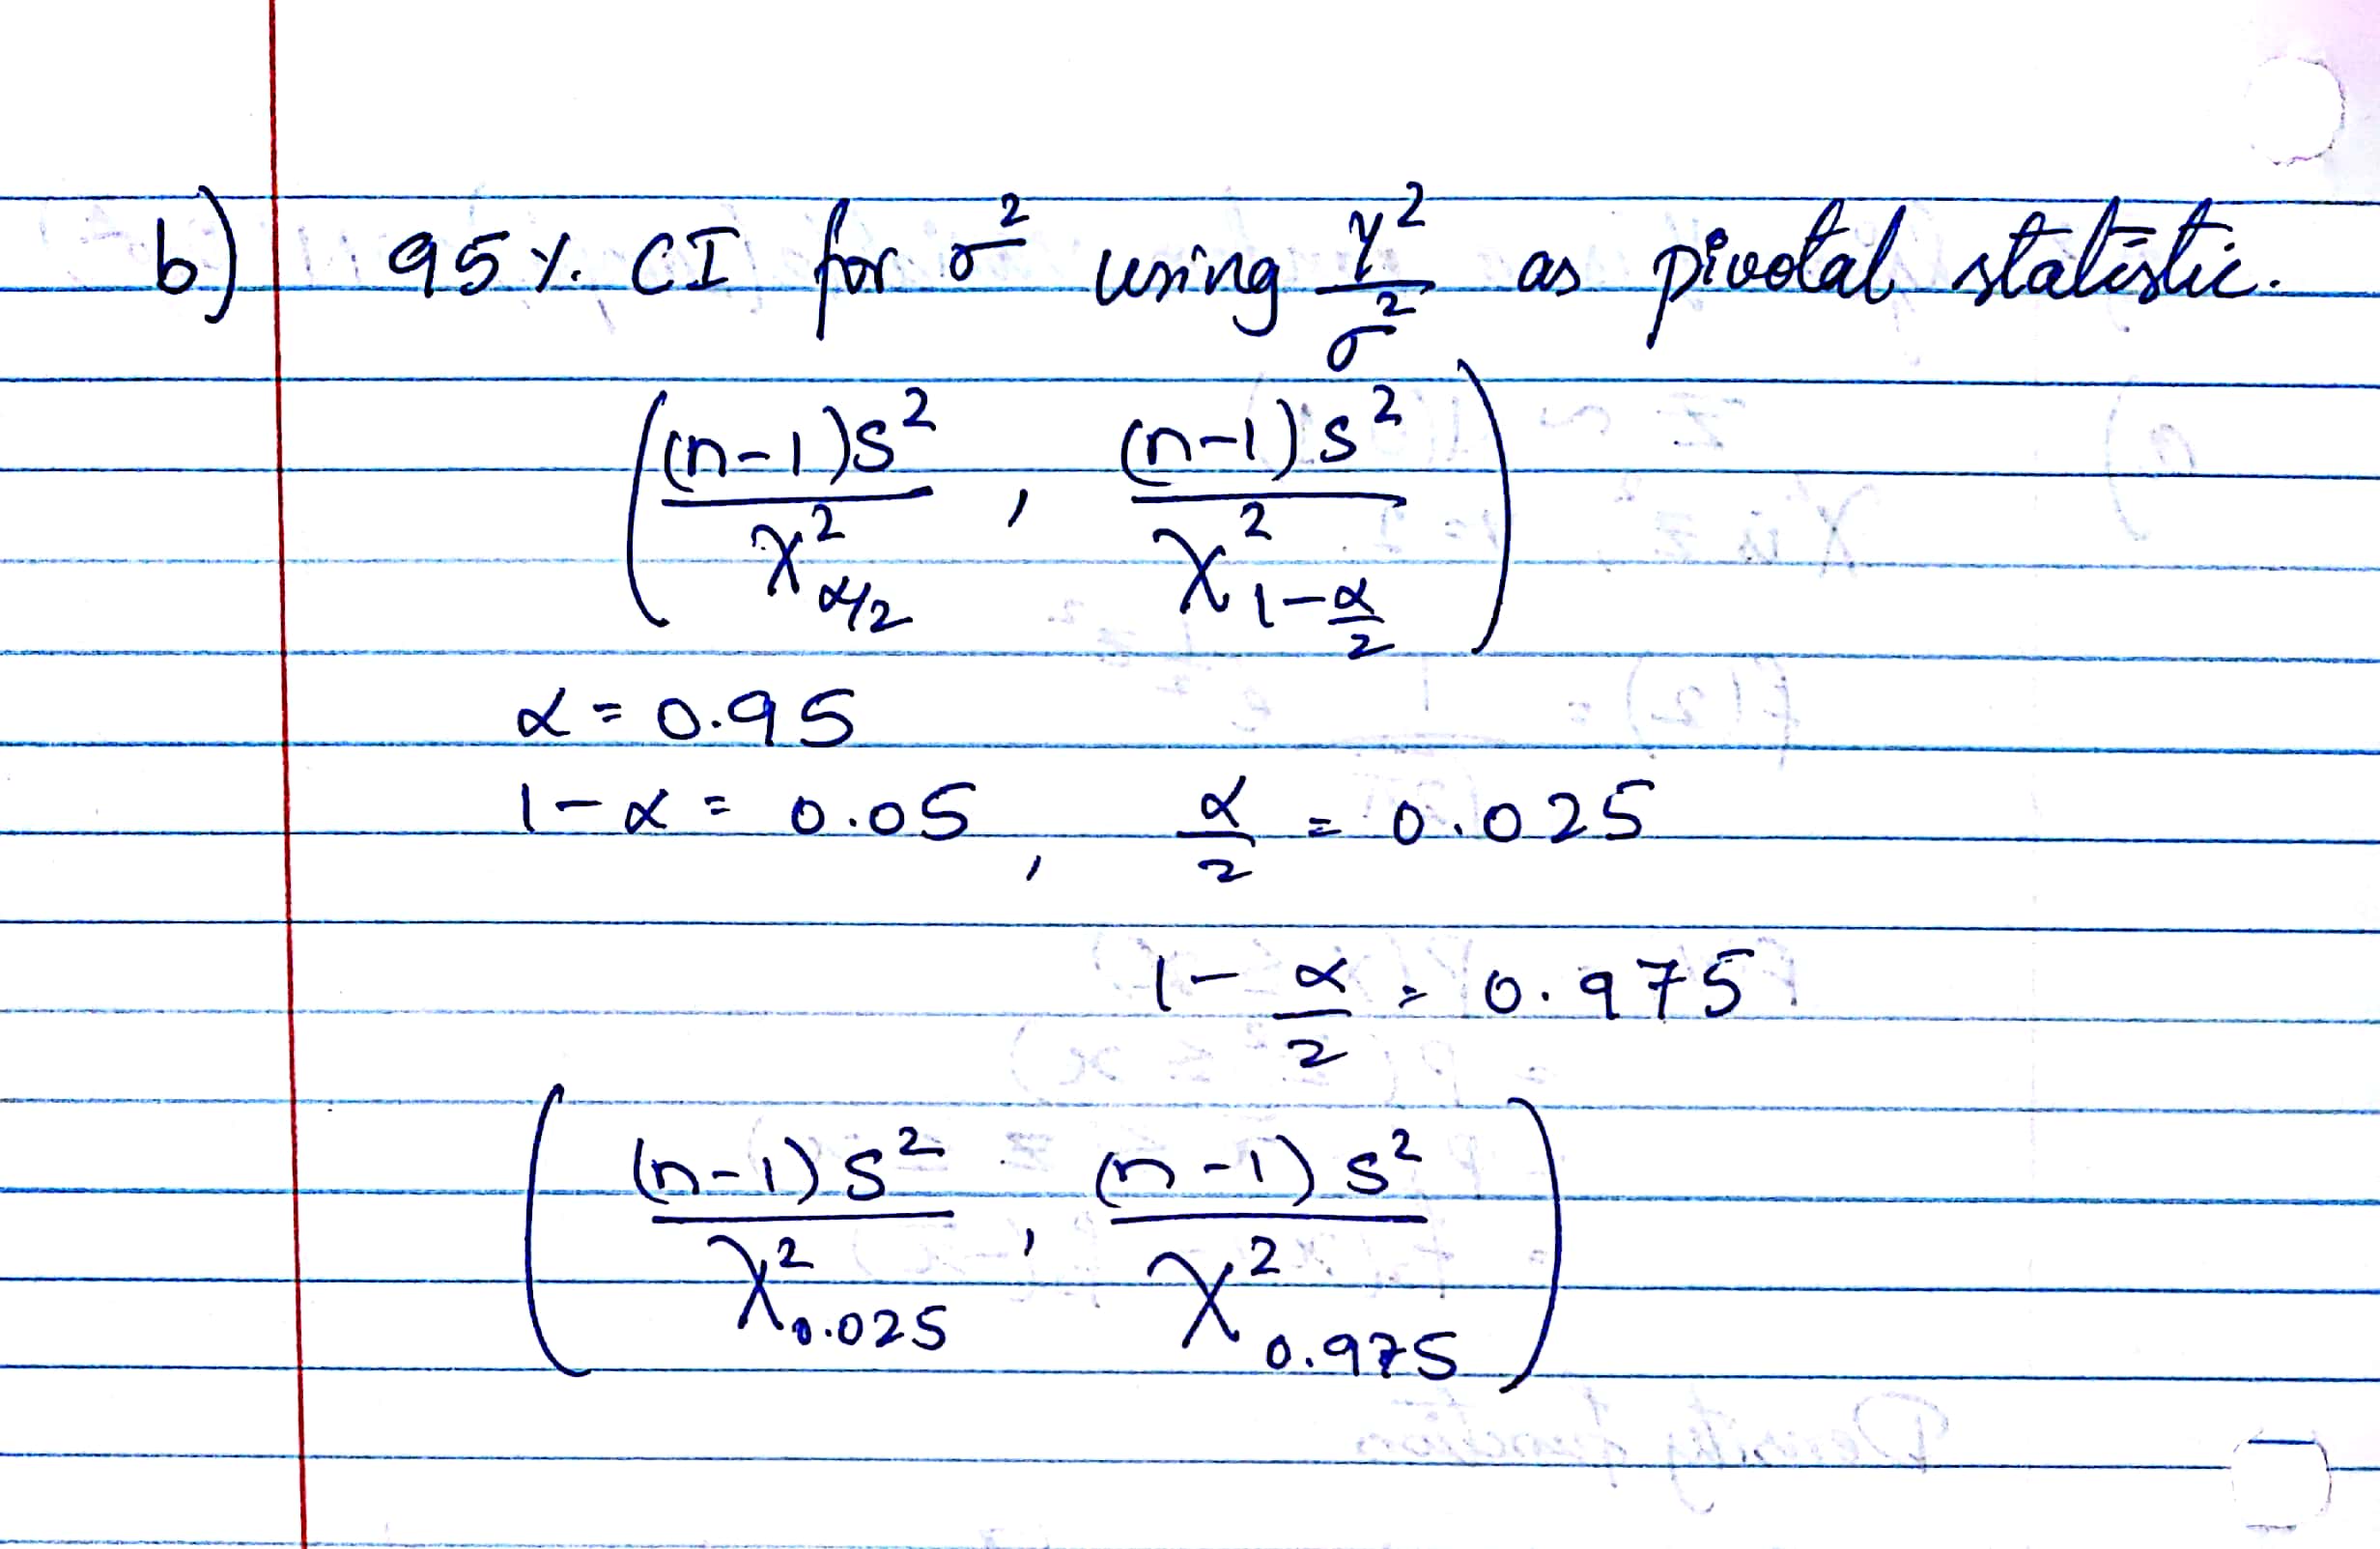 b) 95% CI for σ² using Y²/σ² as pivotal statistic.
( (n-1)S²/χ²α/2 , (n-1)S²/χ²1-α/2 )
α = 0.95
1-α = 0.05 , α/2 = 0.025
1-α/2 = 0.975
( (n-1)S²/χ²0.025 , (n-1)S²/χ²0.975 )
Density function